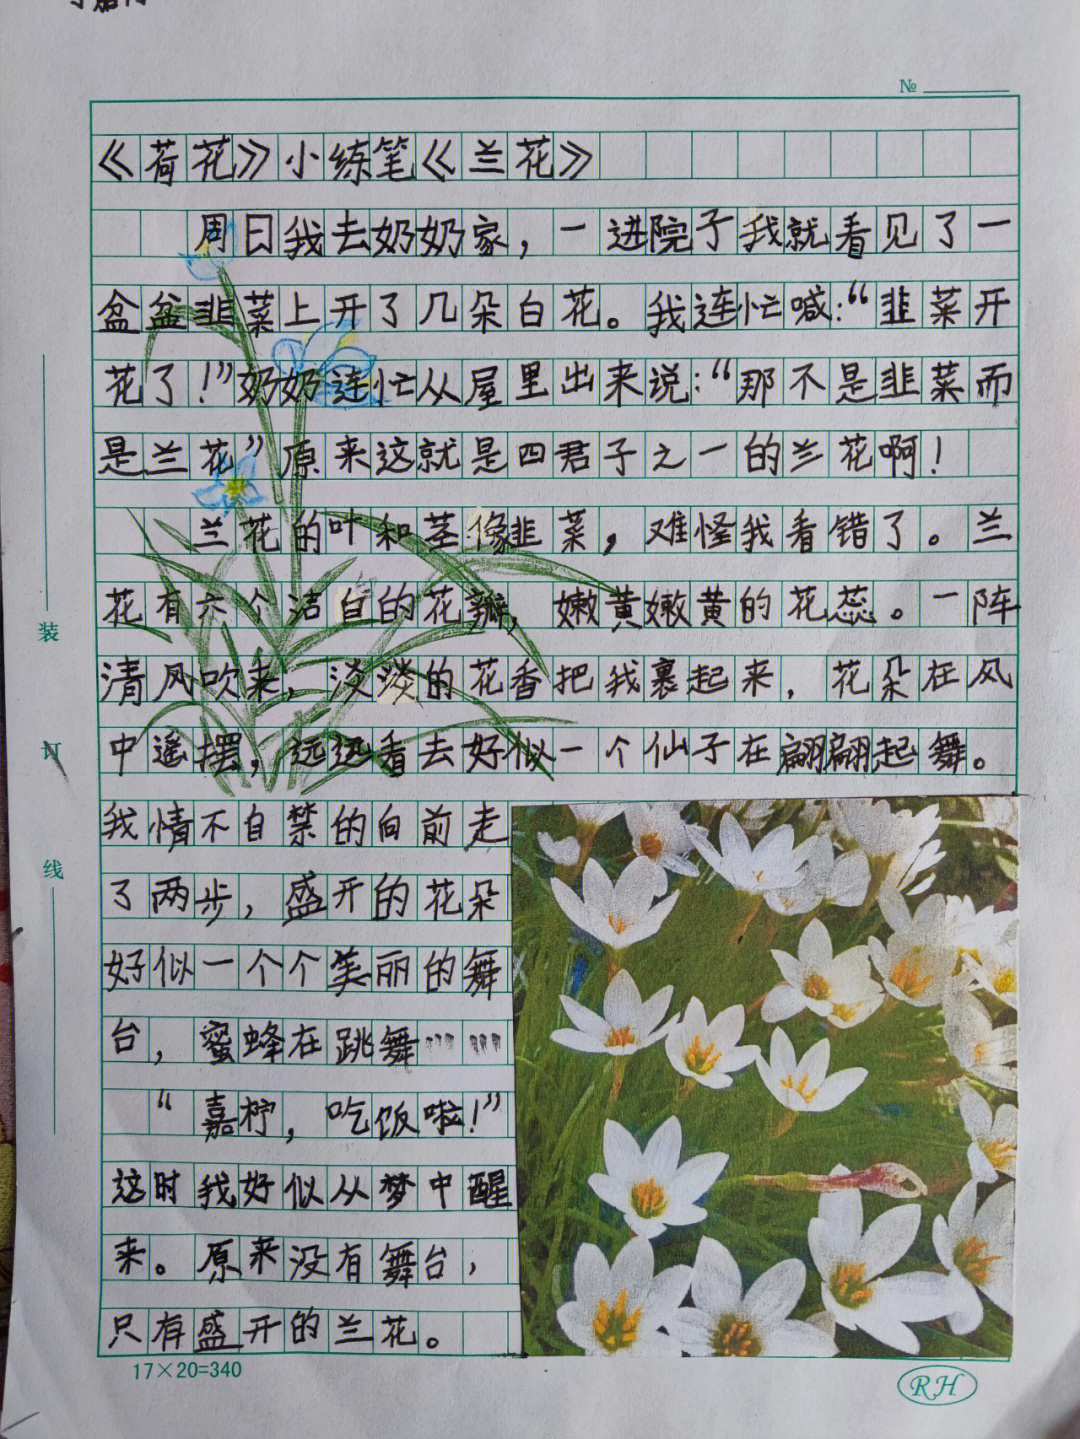 №
《荷花》小练笔《兰花》
周日我去奶奶家，一进院子我就看见了一
盆盆韭菜上开了几朵白花。我连忙喊：“韭菜开
花了！”奶奶连忙从屋里出来说：“那不是韭菜而
是兰花”原来这就是四君子之一的兰花啊！
兰花的叶和茎像韭菜，难怪我看错了。兰
花有六个洁白的花瓣，嫩黄嫩黄的花蕊。一阵
清风吹来，淡淡的花香把我裹起来，花朵在风
中遥摆，远远看去好似一个仙子在翩翩起舞。
我情不自禁的向前走
了两步，盛开的花朵
好似一个个美丽的舞
台，蜜蜂在跳舞……
“嘉柠，吃饭啦！”
这时我好似从梦中醒
来。原来没有舞台，
只有盛开的兰花。
装
订
线
17×20=340
RH